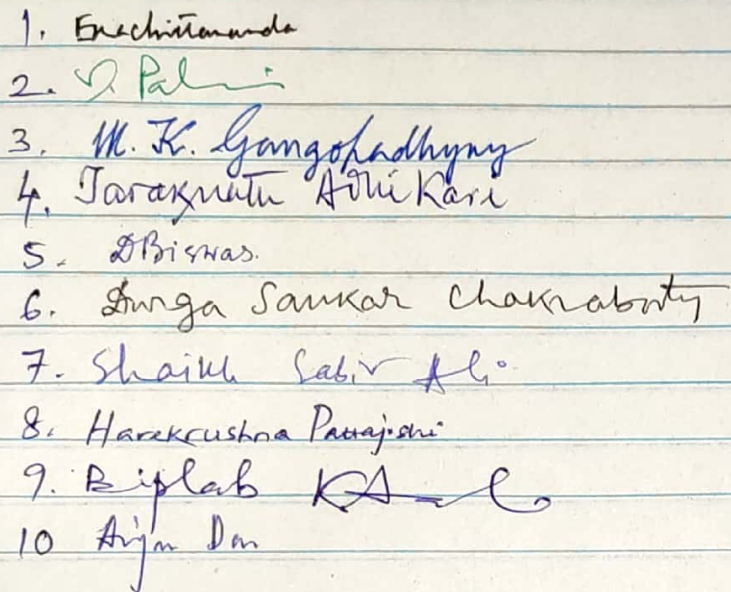 1. Ekachittananda
2.
3. M. K. Gangopadhyay
4. Taraknath Adhikari
5. DBiswas.
6. Durga Sankar Chakraborty
7. Shaikh Sabir Ali
8. Harekrushna Pattajoshi
9. Biplab
10 Arjun